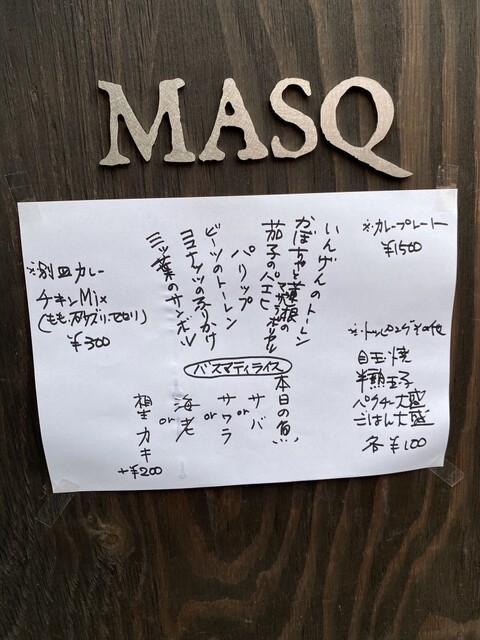 MASQ
※カレープレート
¥1500
いんげんのトーレン
かぼちゃと蓮根の
茄子のパエヒ
パリップ
ビーツのトーレン
ココナッツのふりかけ
三ッ葉のサンボル
バスマティライス
本日の魚
サバ
or
サワラ
or
海老
or
相生カキ
+¥200
※トッピングその他
目玉焼
半熟玉子
パクチー大盛
ごはん大盛
各¥100
※別皿カレー
チキンMix
(もも、砂ズリ、せせり)
¥300